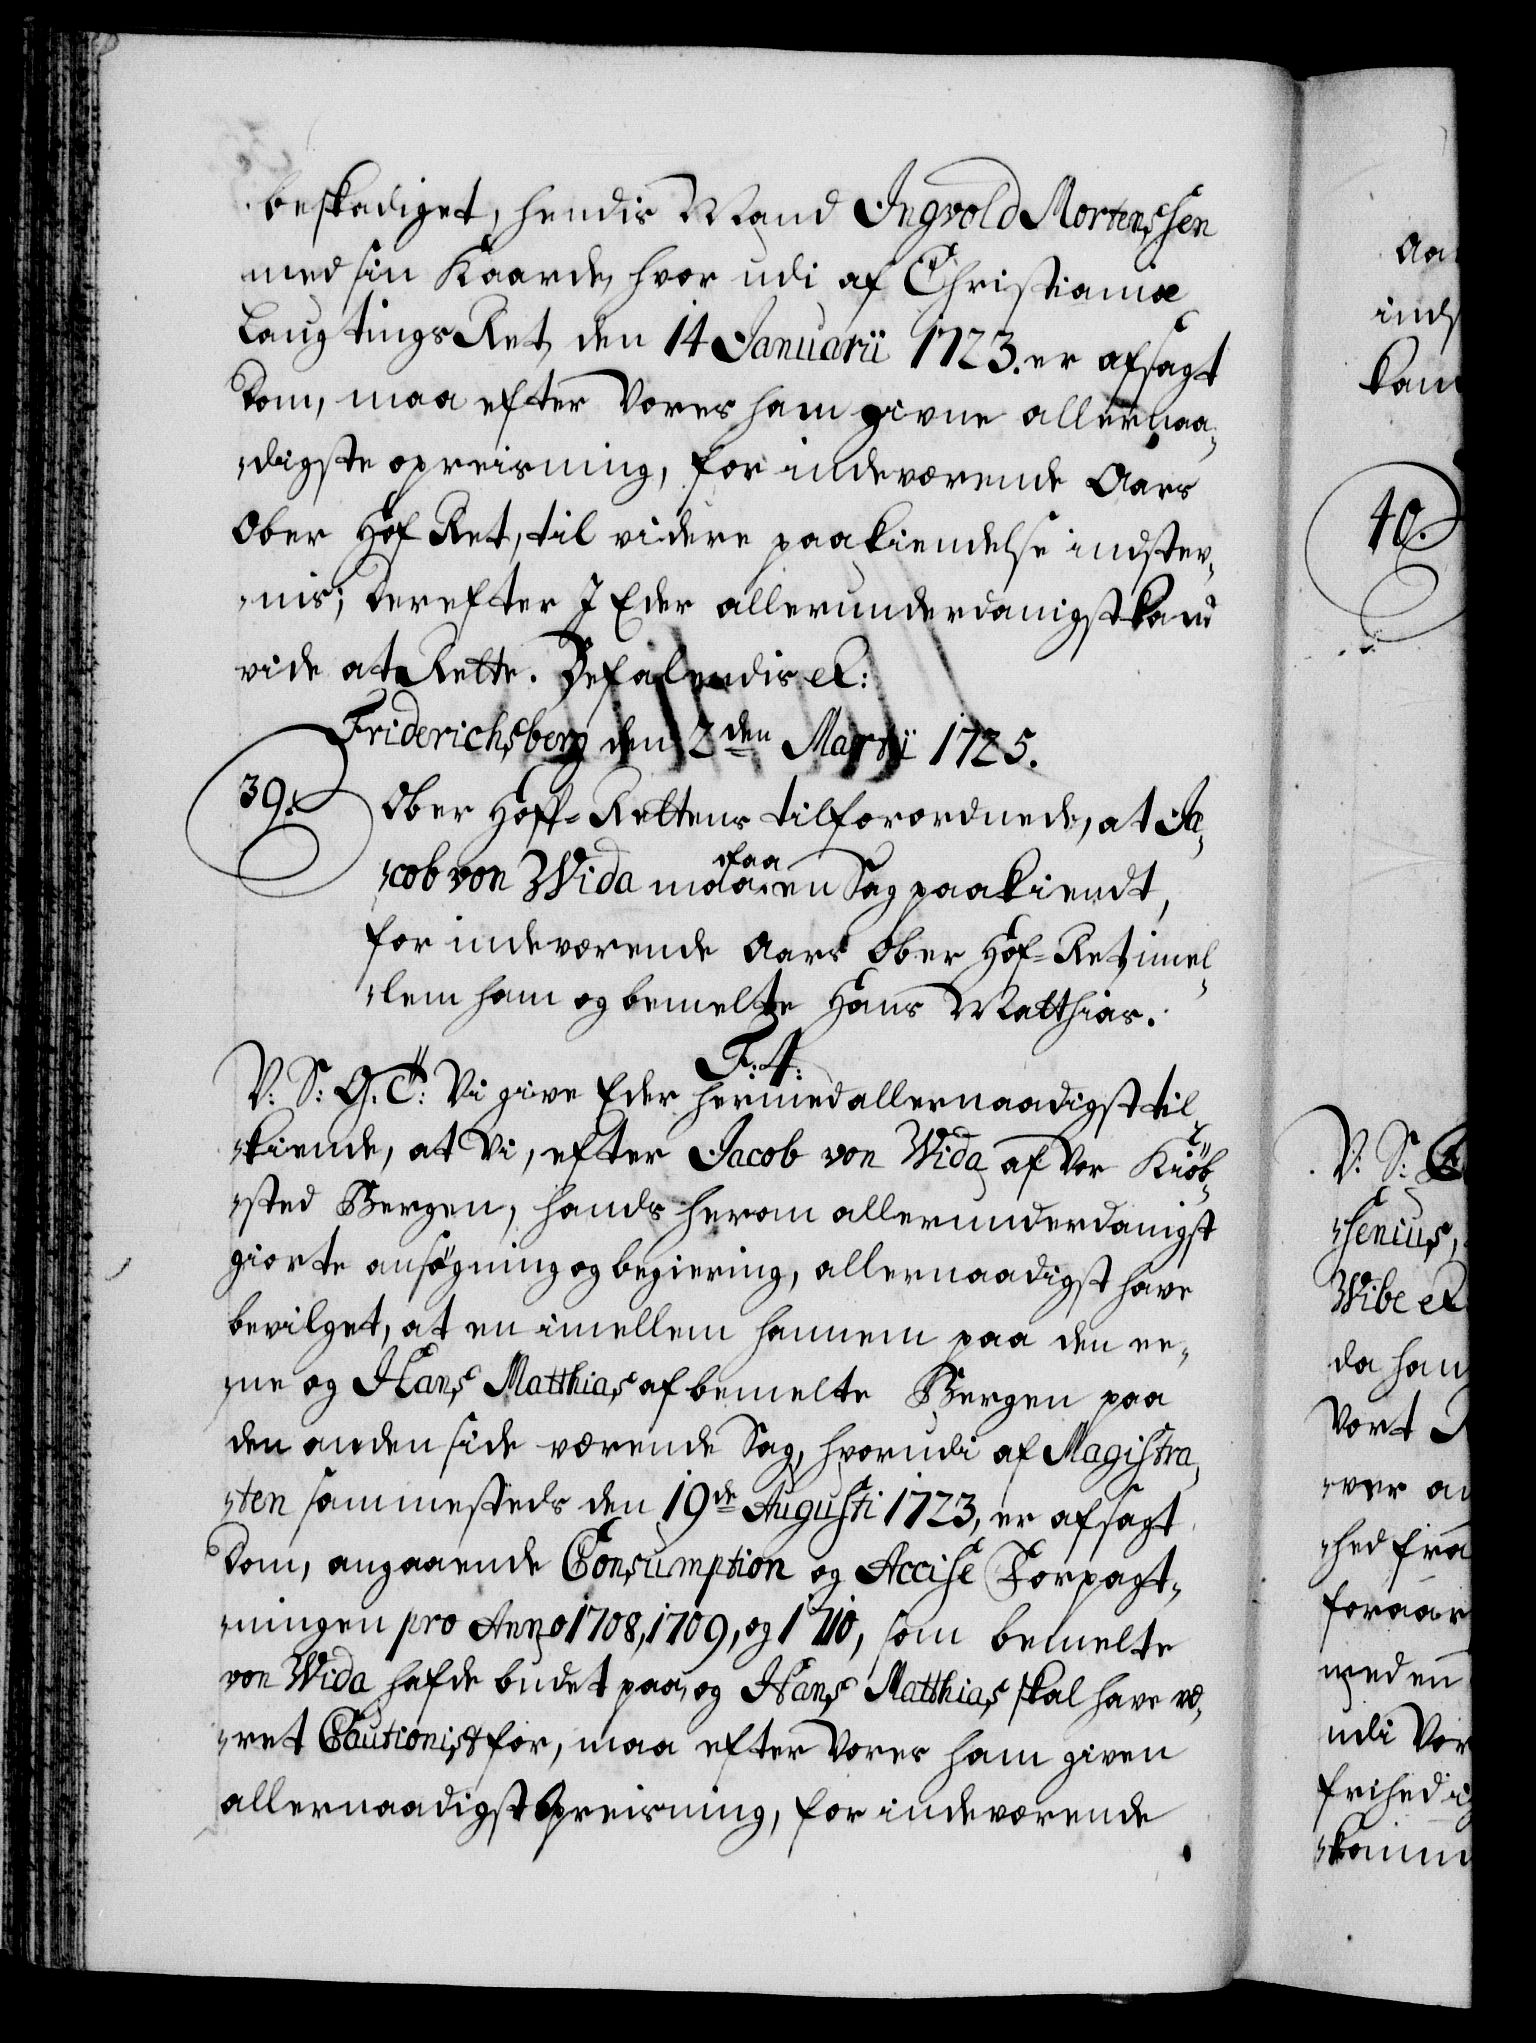 beskadiget, hendis Mand Ingvold Mortenssen
med sin Kaarde, hvor udi af Christianiæ
Laugtings Ret, den 14 Januarii 1723. er afsagt
Dom, maa efter Vores ham givne allernaa-
-digste opreisning, for indeværende Aars
Ober Hof Ret, til videre paakiendelse indstev-
-nis; Derefter I Eder allerunderdanigst kand
vide at Rette. Befalendis &:
Friderichsberg den 2den Martii 1725.
39. Ober Hoff-Rettens tilforordnede, at Ja-
-cob von Wida maa faa en Sag paakiendt,
for indeværende Aars Ober Hof-Ret imel-
-lem ham og bemelte Hans Matthias.
F: 4:
V: S: G. T: Vi give Eder hermed allernaadigst til-
-kiende, at Vi, efter Jacob von Wida af Vor Kiöb-
-sted Bergen, hands herom allerunderdanigst
giorte ansøgning og begiering, allernaadigst have
bevilget, at en imellem hannem paa den ee-
-ne og Hans Matthias af bemelte Bergen paa
den anden side værende Sag, hvorudi af Magistra-
-ten sammesteds den 19de Augusti 1723, er afsagt
Dom, angaaende Consumption og Accise Forpagt-
-ningen pro Anno 1708, 1709, og 1710, som bemelte
von Wida hafde budet paa, og Hans Matthias skal have væ-
-ret Cautionist for, maa efter Vores ham given
allernaadigst Opreisning, for indeværende
40.
V: S:
-senius,
Wibe
da han
Vort
-hed fra
med en
udi Vor
frihed